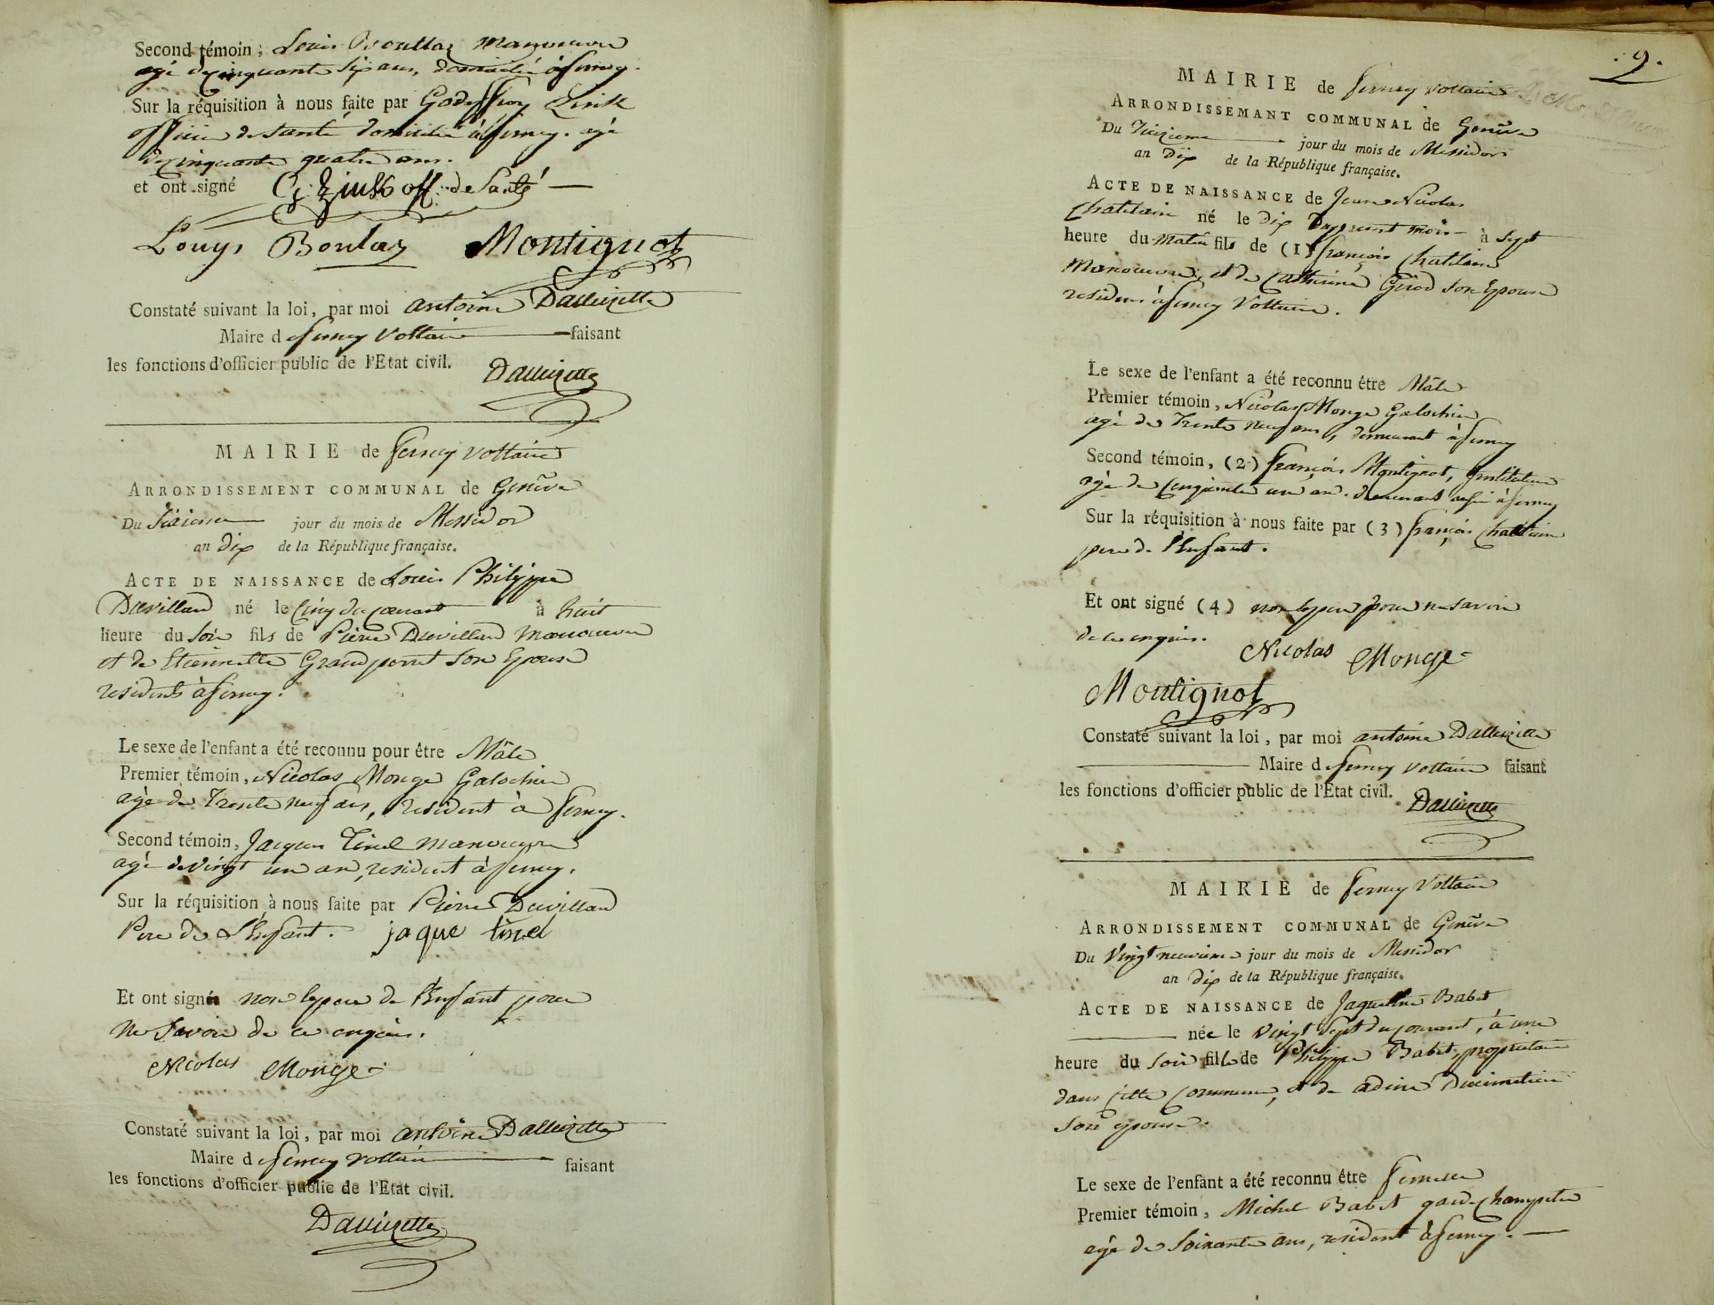 Second témoin; Louis Boullaz manouvre
agé de cinquante six ans, domicilié à ferney.
Sur la réquisition à nous faite par Godeffroy Zinck
officier de santé domicilié à ferney. agé
de cinquante quatre ans.
et ont signé G. Zink off: de Santé
Louys Boulaz Montignot
Constaté suivant la loi, par moi antoine
Maire d ferney Voltaire faisant
les fonctions d'officier public de l'Etat civil.
MAIRIE de ferney Voltaire
ARRONDISSEMENT COMMUNAL de Genêve
Du Sixieme jour du mois de Messidor
an dix de la République française.
ACTE DE NAISSANCE de Louis Philippe
Duvillard né le Cinq du courant à huit
heure du soir fils de Pierre Duvillard manouvre
et de Etiennette Grandperret son Epouse
residents à ferney.
Le sexe de l'enfant a été reconnu pour être Mâle
Premier témoin, Nicolas Monge Galochier
agé de Trente neuf ans, resident à ferney.
Second témoin, Jacques Tinel manouvre
agé de vingt un an, resident à ferney.
Sur la réquisition à nous faite par Pierre Duvillard
Pere de l'Enfant. jaque tinel
Et ont signé non le pere de l'Enfant pour
ne Savoir de ce enquis.
Nicolas Monge
Constaté suivant la loi, par moi antoine
Maire d ferney Voltaire faisant
les fonctions d'officier public de l'Etat civil.
.9.
MAIRIE de ferney Voltaire
ARRONDISSEMANT COMMUNAL de Genêve
Du jour du mois de Messidor
an Dix de la République française.
ACTE DE NAISSANCE de Jean Nicolas
Chatelain né le dix du present mois à sept
heure du matin fils de (1) françois Chatelain
Manouvre, et de Catherine Girod son Epouse
residens à ferney Voltaire.
Le sexe de l'enfant a été reconnu être Mâle
Premier témoin, Nicolas Monge Galochier
agé de Trente neuf ans, demeurant à ferney
Second témoin, (2) françois Montignot, Instituteur
agé de Cinquante un an. demeurant aussi à ferney
Sur la réquisition à nous faite par (3) françois Chatelain
pere de l'Enfant.
Et ont signé (4) non le pere pour ne savoir
de ce enquis.
Nicolas Monge
Montignot
Constaté suivant la loi, par moi antoine
Maire d ferney Voltaire faisant
les fonctions d'officier public de l'Etat civil.
MAIRIE de Ferney Voltaire
ARRONDISSEMENT COMMUNAL de Genêve
Du Vingt neuvieme jour du mois de Messidor
an Dix de la République française.
ACTE DE NAISSANCE de Jaqueline Babet
née le vingt sept du courant, à une
heure du soir fille de Philippe Babet, propriétaire
dans cette Commune, et de
Son epouse.
Le sexe de l'enfant a été reconnu être femelle
Premier témoin, Michel Babet garde Champetre
agé de Soixante ans, resident à ferney.